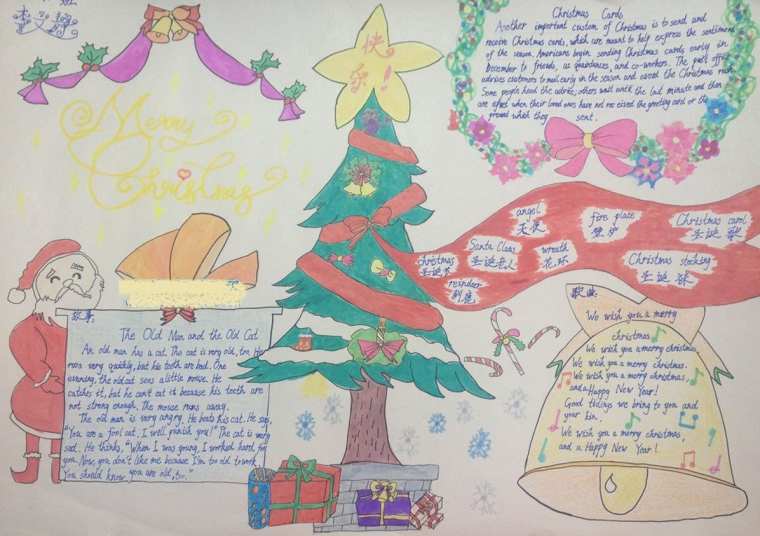 Merry
Christmas
快
乐!
Christmas Cards
Another important custom of Christmas is to send and
receive Christmas cards, which are meant to help express the sentiment
of the season. Americans begin sending Christmas cards early in
December to friends, and co-workers. The post office
advises customers to mail early in the season and avoid the Christmas rush.
Some people heed the advice; others wait until the last minute and then
are upset when their loved ones have not received the greeting card or the
present which they sent.
angel
天使
fire place
壁炉
Christmas carol
圣诞歌
Santa Claus
圣诞老人
wreath
花环
Christmas stocking
圣诞袜
christmas
圣诞节
reindeer
驯鹿
故事:
The Old Man and the Old Cat
An old man has a cat. The cat is very old, too. He
runs very quickly, but his teeth are bad. One
evening, the old cat sees a little mouse. He
catches it, but he can't eat it because his teeth are
not strong enough. The mouse runs away.
The old man is very angry. He beats his cat. He says,
"You are a fool cat. I will punish you!" The cat is very
sad. He thinks, "When I was young, I worked hard for
you. Now you don't like me because I'm too old to work.
You should know you are old, too."
歌曲:
We wish you a merry
christmas
We wish you a merry christmas
We wish you a merry christmas.
We wish you a merry christmas
and a Happy New Year!
Good tidings we bring to you and
your kin.
We wish you a merry christmas
and a Happy New Year!